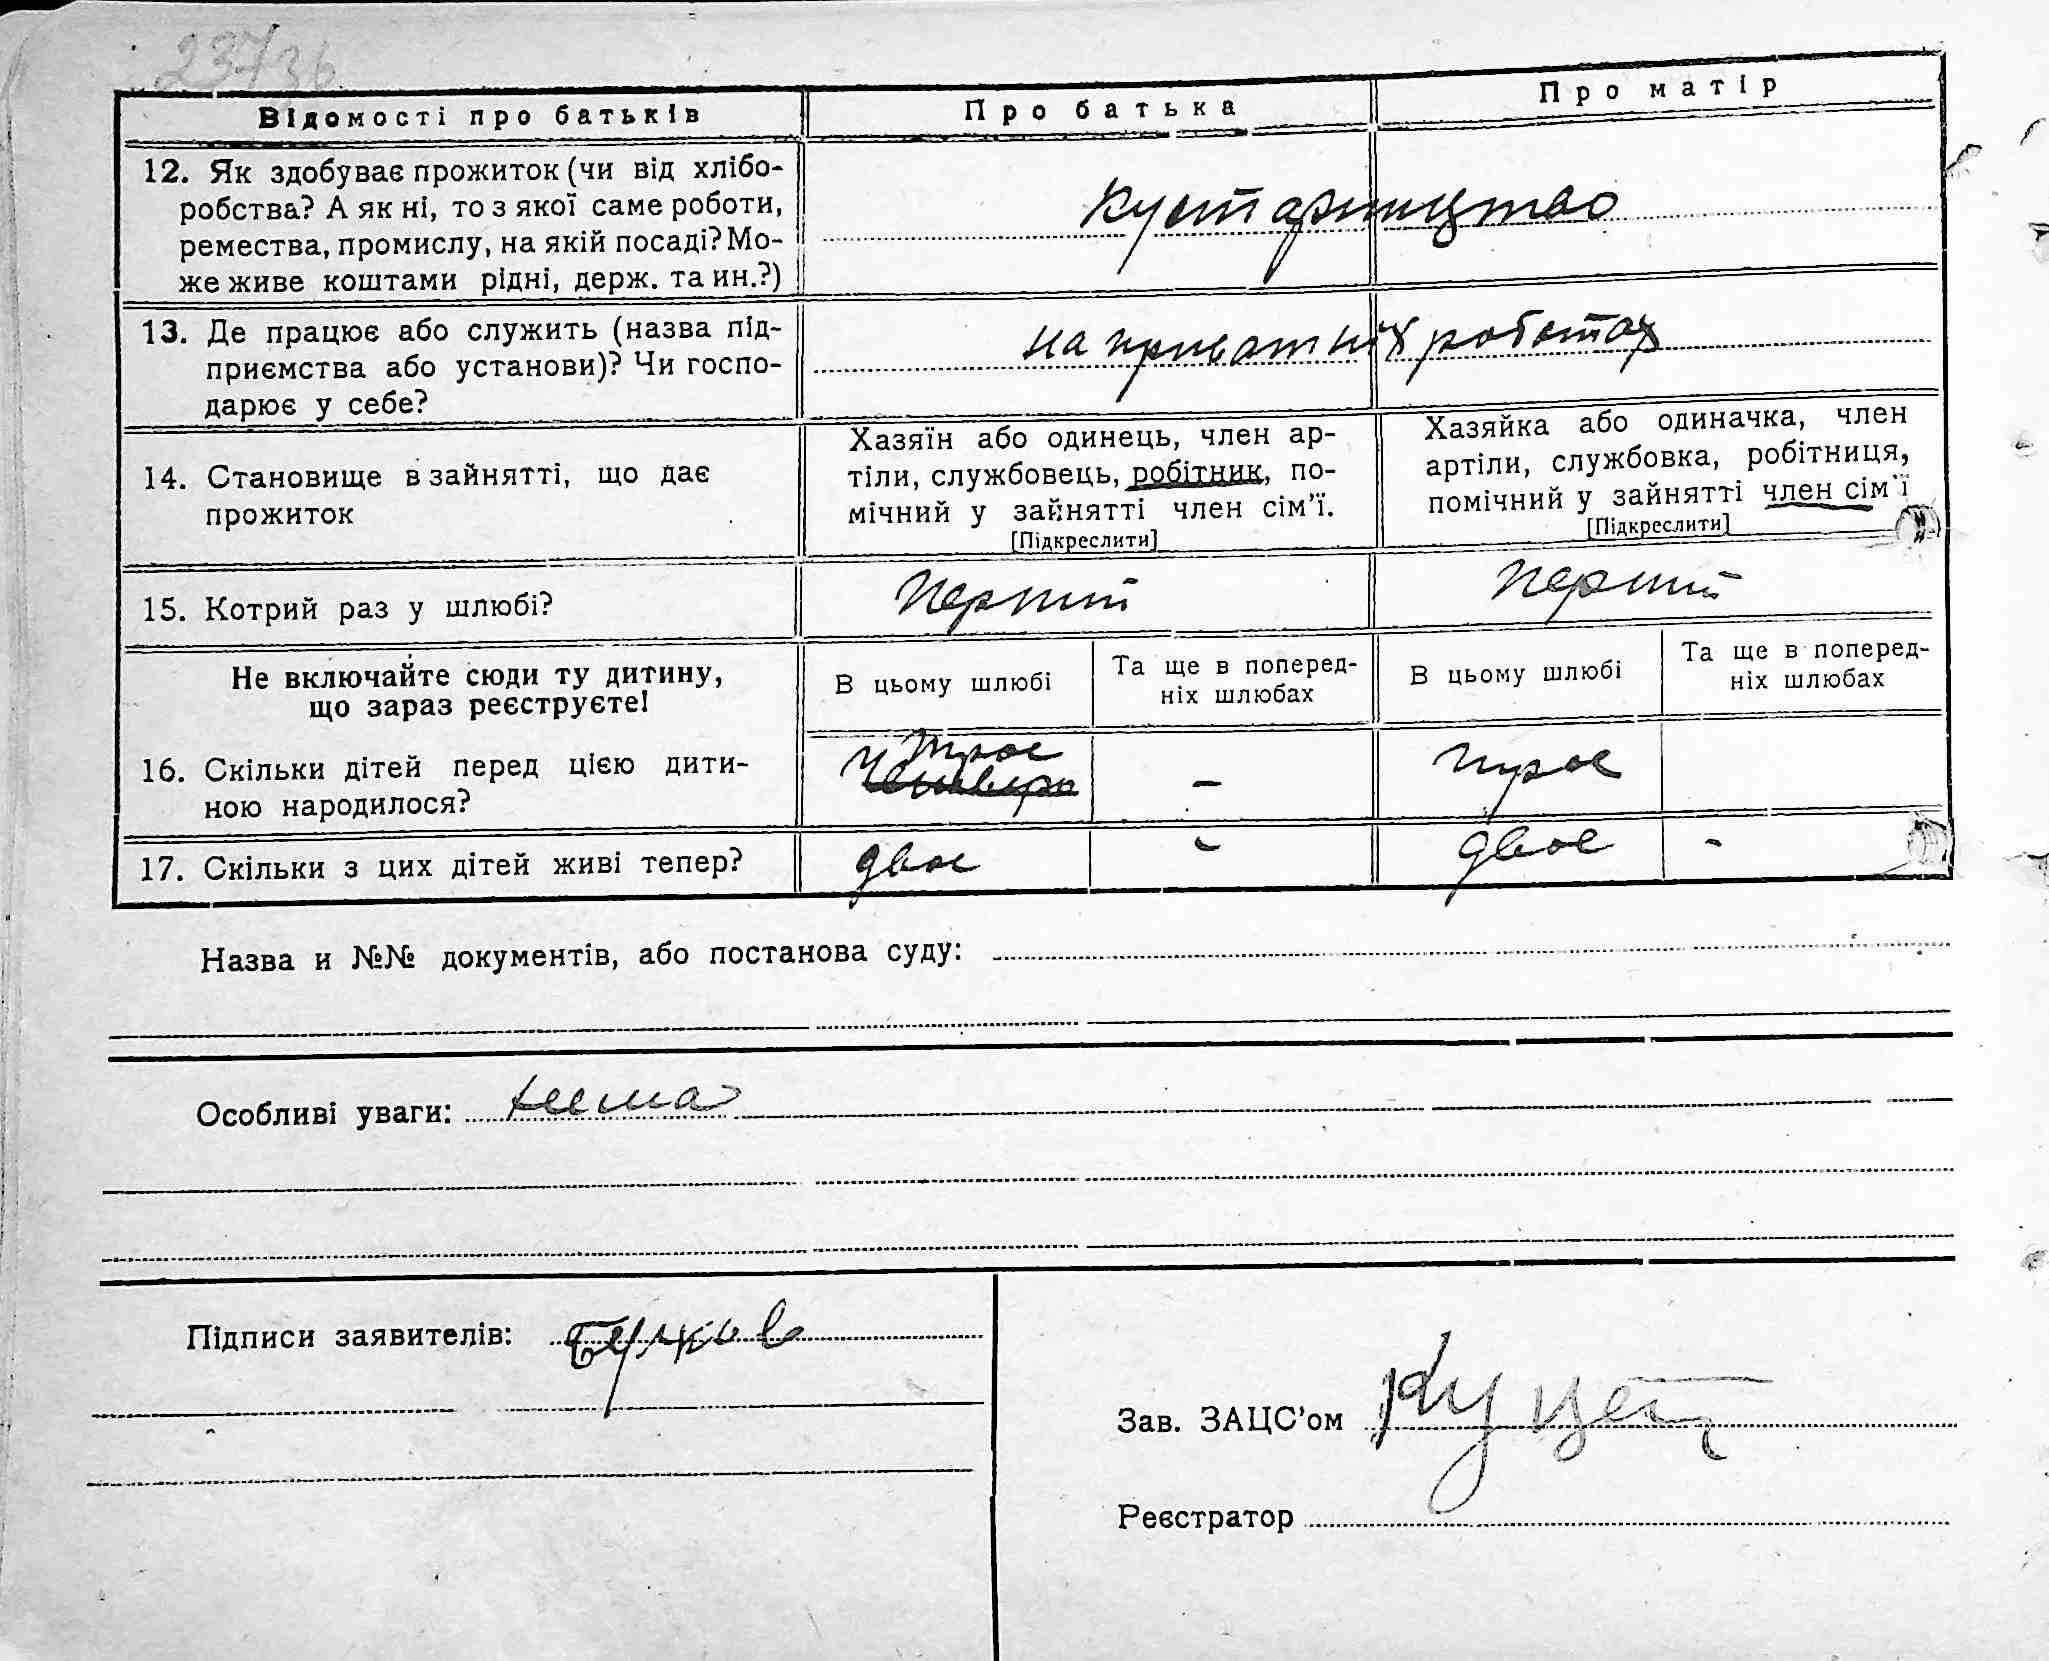 23736
Відомості про батьків
Про батька
Про матір
12. Як здобуває прожиток (чи від хлібо-
робства? А як ні, то з якої саме роботи,
ремества, промислу, на якій посаді? Мо-
же живе коштами рідні, держ. та ин.?)
кустарництво
13. Де працює або служить (назва під-
приємства або установи)? Чи госпо-
дарює у себе?
на приватніх роботах
14. Становище в зайнятті, що дає
прожиток
Хазяїн або одинець, член ар-
тіли, службовець, робітник, по-
мічний у зайнятті член сім'ї.
[Підкреслити]
Хазяйка або одиначка, член
артіли, службовка, робітниця,
помічний у зайнятті член сім'ї
[Підкреслити]
15. Котрий раз у шлюбі?
Перший
Перший
Не включайте сюди ту дитину,
що зараз реєструєте!
В цьому шлюбі
Та ще в поперед-
ніх шлюбах
В цьому шлюбі
Та ще в поперед-
ніх шлюбах
16. Скільки дітей перед цією дити-
ною народилося?
трое
Четверо
–
трое
17. Скільки з цих дітей живі тепер?
двое
-
двое
-
Назва и №№ документів, або постанова суду:
Особливі уваги: нема
Підписи заявителів:
Зав. ЗАЦС'ом Куцет
Реєстратор